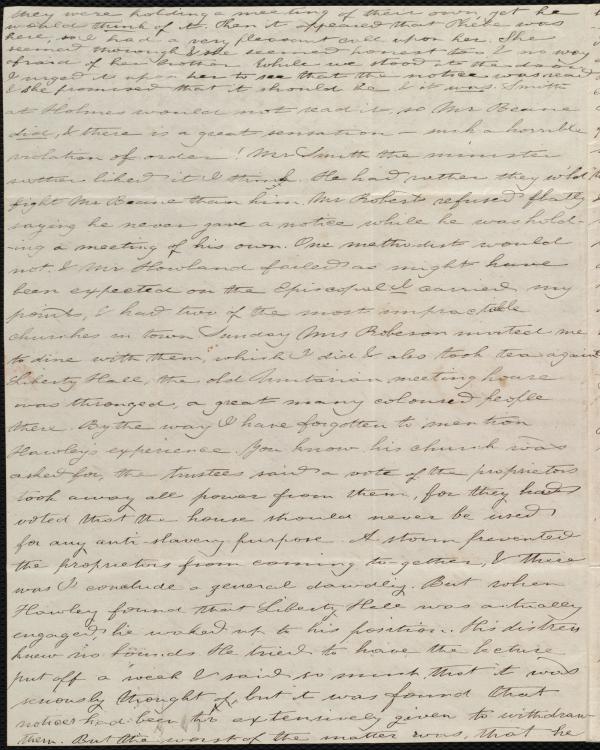 they were holding a meeting of their own yet he
would think of it. Then it appeared that there was
here, so I had a very pleasant call upon her. She
seemed thorough & she seemed honest too & no way
afraid of her brother. While we stood at the door
I urged it upon her to see that the notice was read
& she promised that it should be & it was. Smith
at Holmes would not read it, so Mr Beane
did, & there is a great sensation - such a horrible
violation of order! Mr Smith the minister
rather liked it I think. He had rather they w'ld
fight Mr Beane than him. Mr Roberts refused flatly
saying he never gave a notice while he was hold-
ing a meeting of his own. One methodist would
not. & Mr Howland failed as might have
been expected on the Episcopal I carried my
points, & had two of the most impracticable
churches in town. Sunday Mrs Roberson invited me
to dine with them, which I did & also took tea again
Liberty Hall, the old Unitarian meeting house
was thronged, a great many coloured people
there. By the way I have forgotten to mention
Hawley's experience. You know his church was
asked for, the trustees said a vote of the proprietors
took away all power from them, for they had
voted that the house should never be used
for any anti-slavery purpose. A storm prevented
the proprietors from coming to-gether, & there
was I conclude a general dawdly. But when
Hawley found that Liberty Hall was actually
engaged, he waked up to his position. His distress
knew no bounds. He tried to have the lecture
put off a week & said so much that it was
seriously thought of, but it was found that
notices had been too extensively given to withdraw
them. But the worst of the matter was, that he